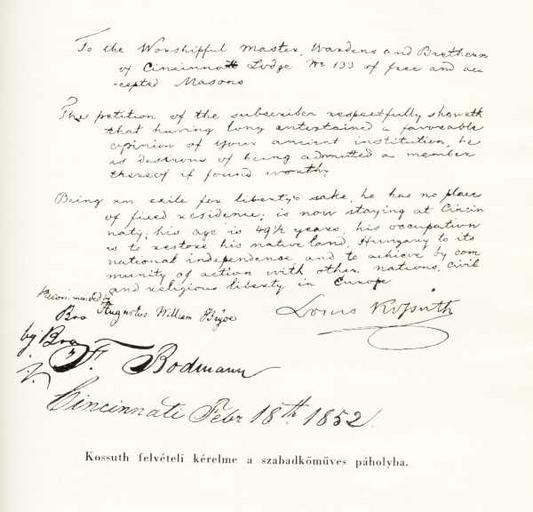 To the Worshipful Master, Wardens and Brethern
of Cincinnati Lodge No 133 of free and ac-
cepted Masons
The petition of the subscriber respectfully showeth
that having long entertained a favorable
opinion of your ancient institution, he
is desirous of being admitted a member
thereof if found worthy
Being an exile for liberty's sake, he has no place
of fixed residence, is now staying at Cincin
naty; his age is 49½ years, his occupation
is to restore his native land, Hungary to its
national independence and to achieve by com
munity of action with other nations, civil
and religious liberty in Europe
Louis Kossuth
Recommended by
Bro Augustus William
by Bro
F. Bodmann
Cincinnati Febr 18th 1852.
Kossuth felvételi kérelme a szabadkőműves páholyba.